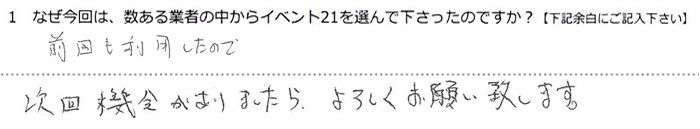 1 なぜ今回は、数ある業者の中からイベント21を選んで下さったのですか？【下記余白にご記入下さい】
前回も利用したので
次回機会がありましたら、よろしくお願い致します。